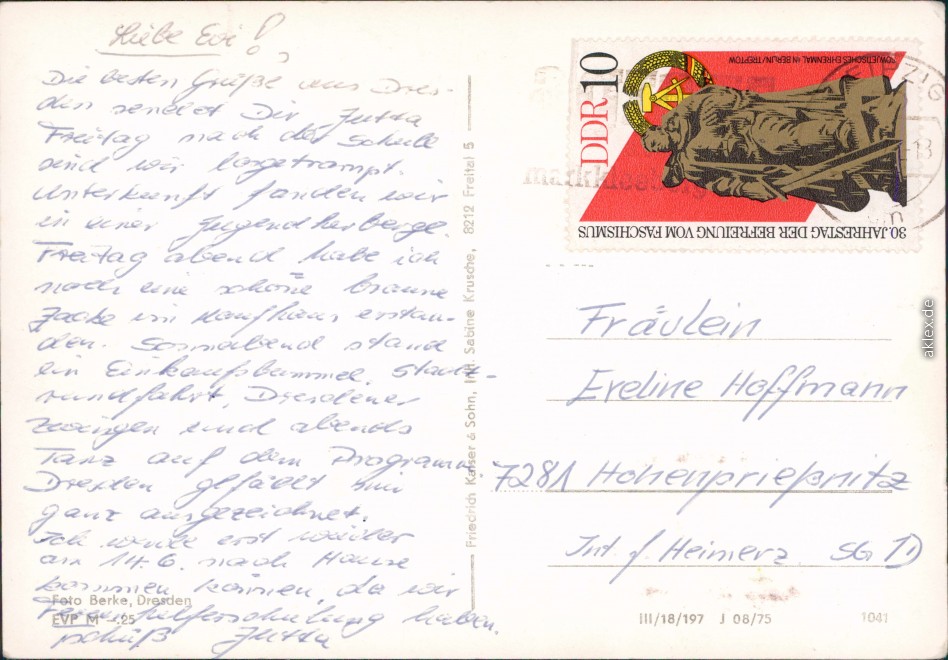 Liebe Evi!
Die besten Grüße aus Dres-
den sendet Dir Jutta
Freitag nach der Schule
sind wir losgetrampt.
Unterkunft fanden wir
in einer Jugendherberge.
Freitag abend habe ich
noch eine schöne braune
Jacke im Kaufhaus erstan-
den. Sonnabend stand
ein Einkaufsbummel, Stadt-
rundfahrt, Dresdener
Zwinger und abends
Tanz auf dem Programm.
Dresden gefällt mir
ganz ausgezeichnet.
Ich werde erst wieder
am 14.6. nach Hause
kommen können, da wir
Ferienhelferschulung haben.
Tschüß Jutta
Foto Berke, Dresden
EVP M -.25
Friedrich Kaiser & Sohn, Inh. Sabine Krusche, 8212 Freital 5
DDR 10
SOWJETISCHES EHRENMAL IN BERLIN-TREPTOW
30. JAHRESTAG DER BEFREIUNG VOM FASCHISMUS
Fräulein
Eveline Hoffmann
7281 Hohenprießnitz
Int. f. Heimerz. SG 1D
III/18/197 J 08/75
1041
aklex.de